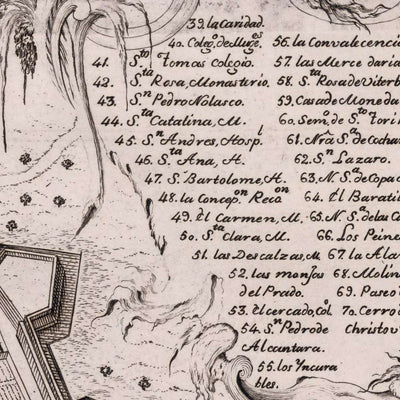 39. la Caridad.
40. Colegᵒ de Mugeˢ
41. Sᵗᵒ Tomas colegio.
42. Sᵗᵃ Rosa, Monasterio.
43. Sⁿ Pedro Nolasco.
44. Sᵗᵃ Catalina, M.
45. Sⁿ Andres, Hospˡ
46. Sᵗᵃ Ana, H.
47. S. Bartolome, H.
48. la Concepᵒⁿ Recᵒⁿ
49. El Carmen, M.
50. Sᵗᵃ Clara, M.
51. las Descalzas, M.
52. las monjas del Prado.
53. El cercado, Colᵒ
54. Sⁿ Pedro de Alcantara.
55. los Yncurables.
56. la Convalecenci
57. las Mercedaria
58. Sᵗᵃ Rosa de Viterb
59. Casa de Moneda
60. Semᵒ de Sᵗᵒ Tori
61. Nrᵃ Sᵃ de Cochar
62. Sⁿ Lazaro.
63. N. Sᵃ de Copac
64. El Barati
65. N. Sᵃ de las Ca
66. Los Peine
67. la Ala
68. Molin
69. Paseo
70. Cerro d christov